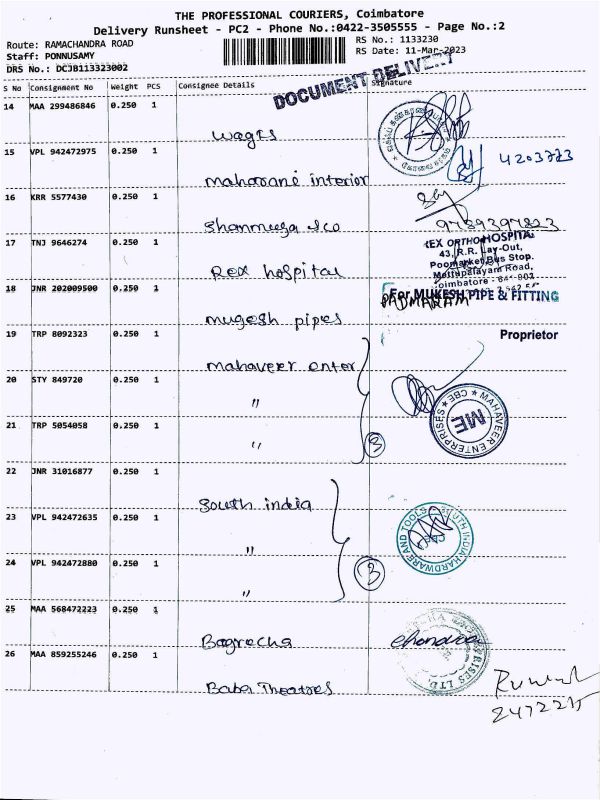 THE PROFESSIONAL COURIERS, Coimbatore
Delivery Runsheet - PC2 - Phone No.:0422-3505555 - Page No.:2
Route: RAMACHANDRA ROAD
RS No.: 1133230
Staff: PONNUSAMY
RS Date: 11-Mar-2023
DRS No.: DCJB113323002
DOCUMENT DELIVERY
S No Consignment No Weight PCS Consignee Details Signature
14 MAA 299486846 0.250 1
Wages
15 VPL 942472975 1 0.250 1
4203773
Maharani interior
16 KRR 5577430 0.250 1
Shanmuga & co
9789397823
17 TNJ 9646274 0.250 1
REX ORTHO HOSPITAL
43, R.R. Lay-Out,
Poomarket Bus Stop.
Mettupalayam Road,
Coimbatore
Rex hospital
18 JNR 202009500 0.250 1
For MUKESH PIPE & FITTING
PADMARAM
Mugesh pipes
19 TRP 8092323 0.250 1
Proprietor
Mahaveer enter
20 STY 849720 0.250 1
"
MAHAVEER ENTERPRISES ★ CBE ★
ME
21 TRP 5054058 0.250 1
"
3
22 JNR 31016877 0.250 1
South india
23 VPL 942472635 0.250 1
SOUTH INDIA HARDWARE AND TOOLS
"
24 VPL 942472880 0.250 1
3
"
25 MAA 568472223 0.250 1
Bagrecha
Chandra
26 MAA 859255246 0.250 1
Baba Theatres